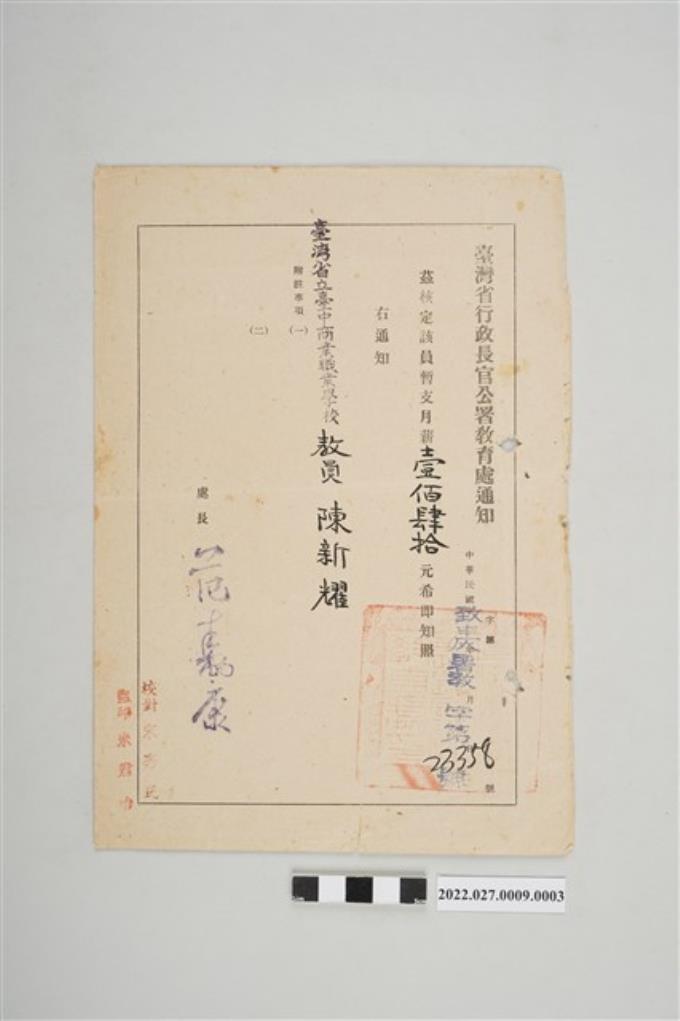 臺灣省行政長官公署教育處通知
中華民國
字第
月
署教
字第
23358
號
茲核定該員暫支月薪壹佰肆拾元希即知照
右通知
臺灣省立臺中商業職業學校教員陳新耀
附註事項(一)
(二)
處長
范壽康
校對
監印
2022.027.0009.0003